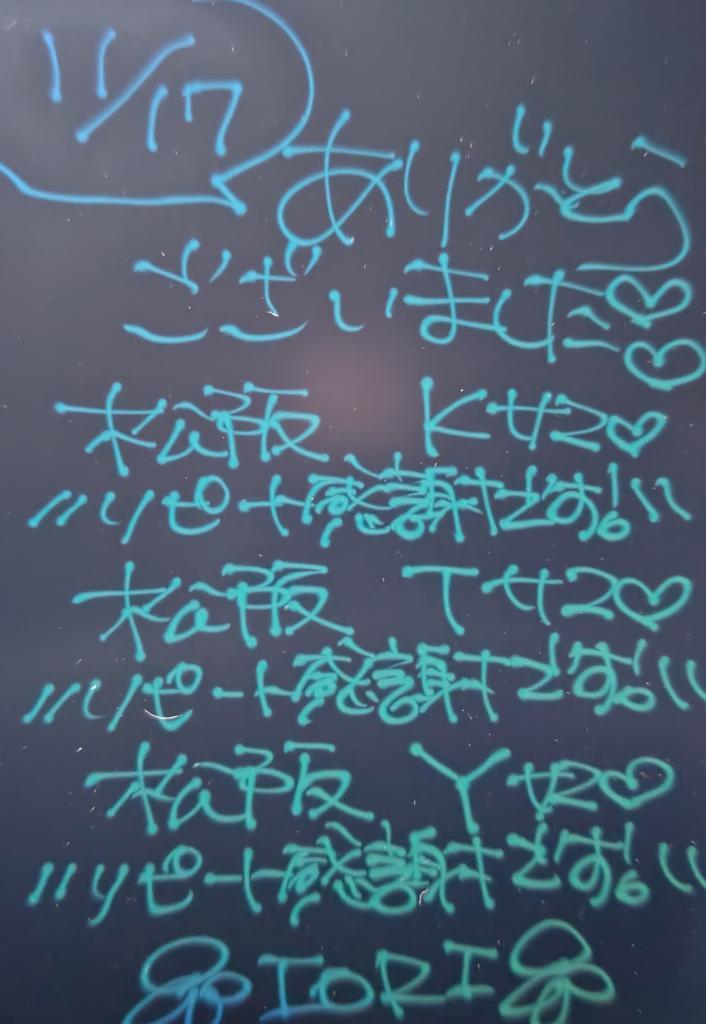 11/17
ありがとう
ございました♡♡
松阪 Kサン♡
〃リピート感謝です!!〃
松阪 Tサン♡
〃リピート感謝です!!〃
松阪 Yサン♡
〃リピート感謝です!!〃
IORI